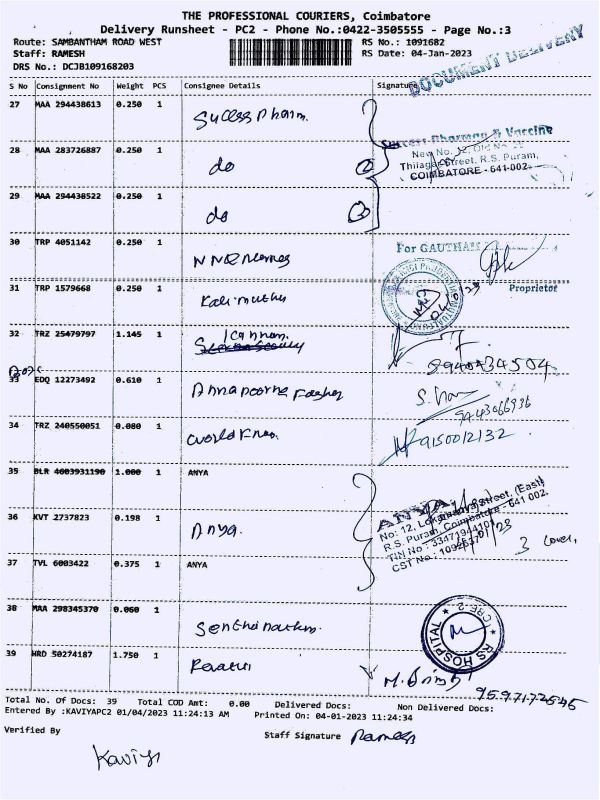 THE PROFESSIONAL COURIERS, Coimbatore
Delivery Runsheet - PC2 - Phone No.:0422-3505555 - Page No.:3
Route: SAMBANTHAM ROAD WEST RS No.: 1091682
Staff: RAMESH RS Date: 04-Jan-2023
DRS No.: DCJB109168203
DOCUMENT DELIVERY
S No Consignment No Weight PCS Consignee Details Signature
27 MAA 294438613 0.250 1 Success Pharm.
28 MAA 283726887 0.250 1 do
Success Pharma & Vaccine
New No. 12, Old No.
Thilagar Street, R.S. Puram,
COIMBATORE - 641-002.
29 MAA 294438522 0.250 1 do
30 TRP 4051142 0.250 1
For GAUTHAM
Proprietor
31 TRP 1579668 0.250 1 Kalimuthu
32 TRZ 25479797 1.145 1 Kannan.
33 EDQ 12273492 0.610 1 Annapoorna
9443066936
34 TRZ 240550051 0.080 1 World
9150012132
35 BLR 4603931190 1.000 1 ANYA
36 KVT 2737823 0.198 1 Anya.
ANYA
No: 12, Street, (East)
R.S. Puram, Coimbatore - 641 002.
TIN No :
CST No :
3 cover,
37 TVL 6003422 0.375 1 ANYA
38 MAA 298345370 0.060 1
RS HOSPITAL CBE-2
39 HRD 50274187 1.750 1 Revathi
Total No. Of Docs: 39 Total COD Amt: 0.00 Delivered Docs: Non Delivered Docs:
Entered By :KAVIYAPC2 01/04/2023 11:24:13 AM Printed On: 04-01-2023 11:24:34
Verified By Staff Signature Ramesh
Kaviya